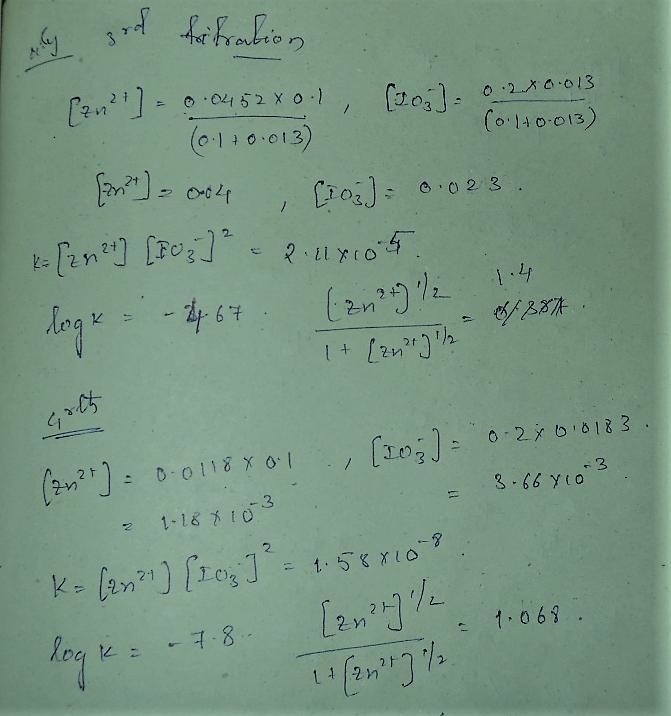 llly 3rd titration
[Zn2+] = 0.0452 x 0.1 / (0.1 + 0.013) , [IO3-] = 0.2 x 0.013 / (0.1+0.013)
[Zn2+] = 0.04 , [IO3-] = 0.023 .
K= [Zn2+] [IO3-]2 = 2.11x10-5 .
log K = - 4.67 . [Zn2+]1/2 / 1 + [Zn2+]1/2 = 1.4 .
4rth
[Zn2+] = 0.0118 x 0.1 , [IO3-] = 0.2 x 0.0183 .
= 1.18 x 10-3 = 3.66 x10-3 .
K = [Zn2+] [IO3-]2 = 1.58 x10-8 .
log K = - 7.8 . [Zn2+]1/2 / 1+[Zn2+]1/2 = 1.068 .